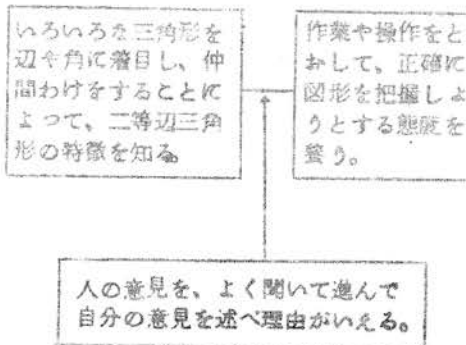 いろいろな三角形を
辺や角に着目し、仲
間わけをすることに
よって、二等辺三角
形の特徴を知る。
作業や操作をと
おして、正確に
図形を把握しよ
うとする態度を
養う。
人の意見を、よく聞いて進んで
自分の意見を述べ理由がいえる。